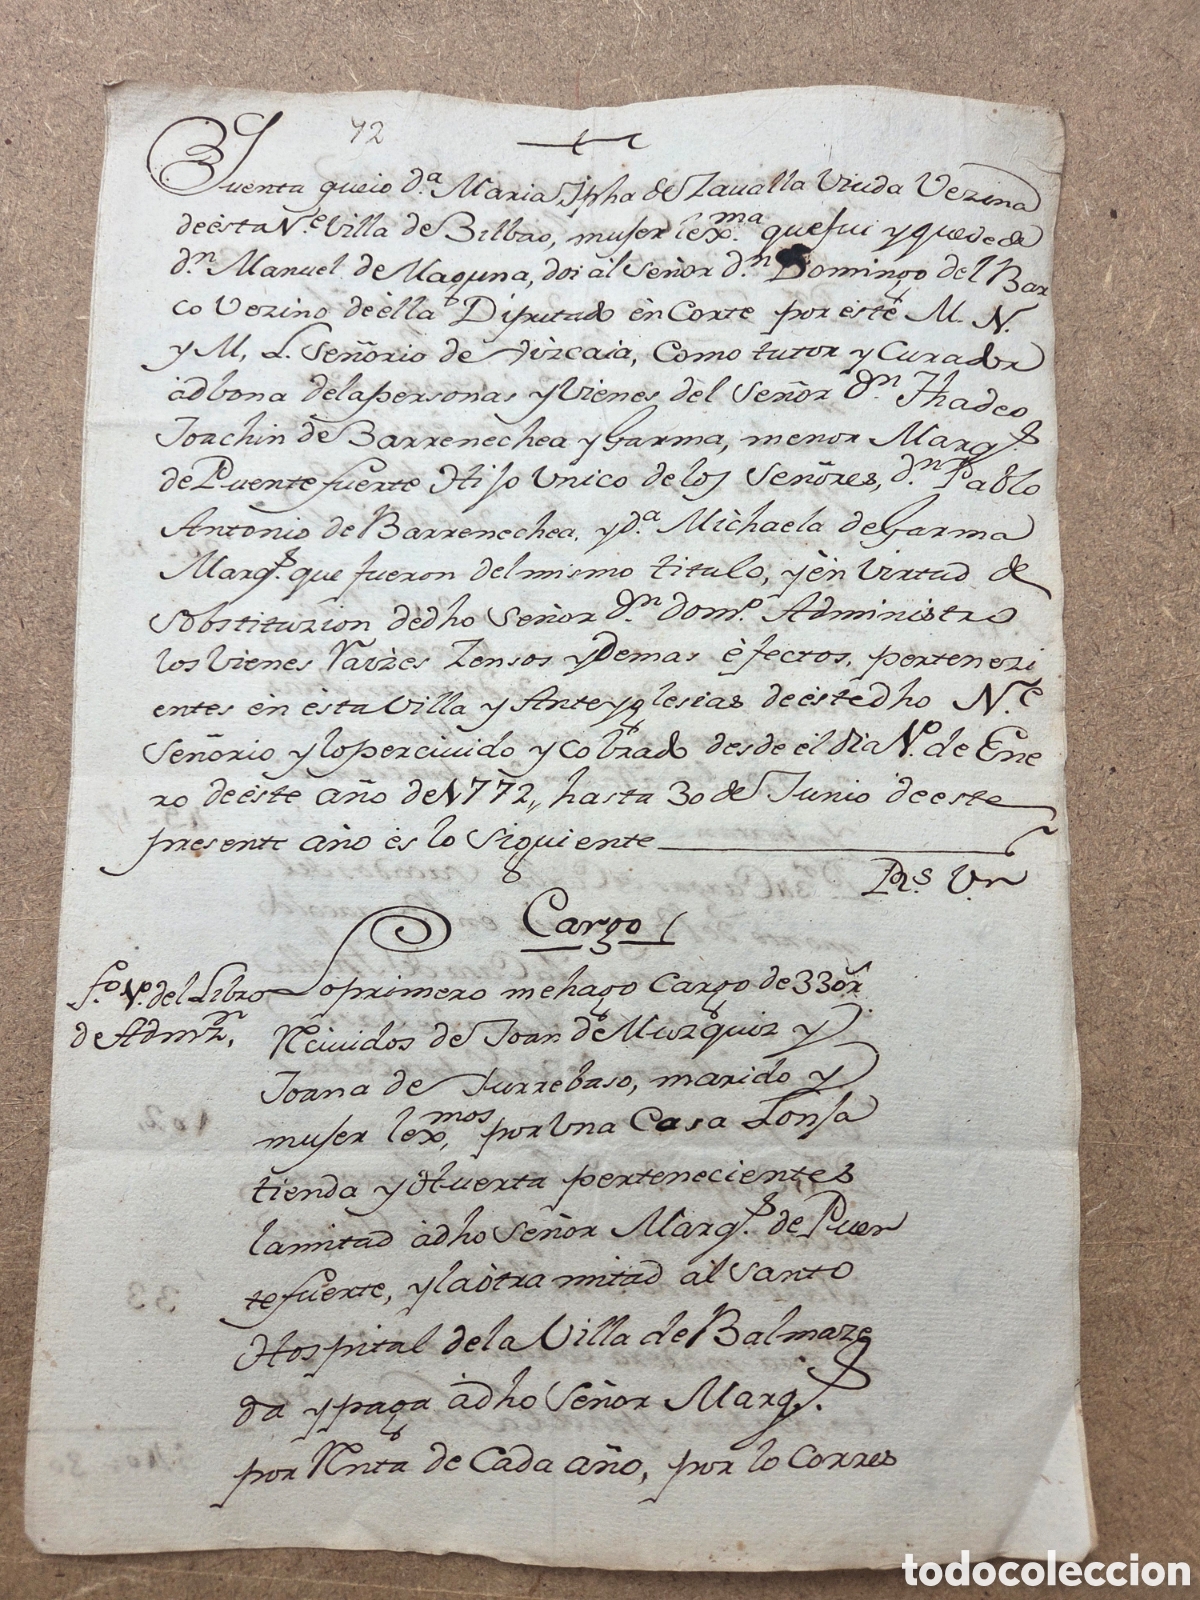 72
Cuenta que io d.ª Maria Jpha de Zaualla Viuda Vezina
de ésta N.e Villa de Bilbao, muger lex.ma que fui y quede de
d.n Manuel de Maguna, doi al Señor d.n Domingo del Bar
co Vezino de élla Diputado én Corte por éste M. N.
y M. L. Señorio de Vizcaia, Como tutor y Curador
ádbona de la persona y vienes del Señor d.n Thadeo
Joachin de Barrenechea y Garma, menor Marq.s
de Puente fuerte Hijo Vnico de los Señores, d.n Pablo
Antonio de Barrenechea, y d.ª Michaela de Garma
Marq.s que fueron del mismo titulo, y én Virtud de
Sobstituzion de dho Señor d.n Dom.o Administro
los vienes Raizes Zensos y Demas éfectos, pertenezi
entes én ésta Villa y Anteyglesias de éste dho N.e
Señorio y lo perciuido y cobrado desde él dia 1.o de Ene
ro de éste año de 1772,, hasta 30 de Junio de este
presente año és lo Siguiente
R.s V.n
Cargo
f.o 1.o del Libro
de Adm.n
Lo primero me hago Cargo de 330 r.
Reciuidos de Joan de Muzquiz y
Joana de Yurrebaso, marido y
muger lex.mos, por Vna Casa Lonja
tienda y Huerta pertenecientes
la mitad á dho Señor Marq.s de Puen
te fuerte, y la ótra mitad al Santo
Hospital de la Villa de Balmaze
da y paga á dho Señor Marq.s
por Renta de Cada año, por lo Corres
todocoleccion